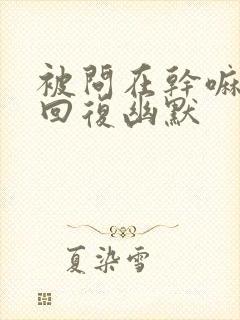 被問在幹嘛
回復幽默
夏染雪